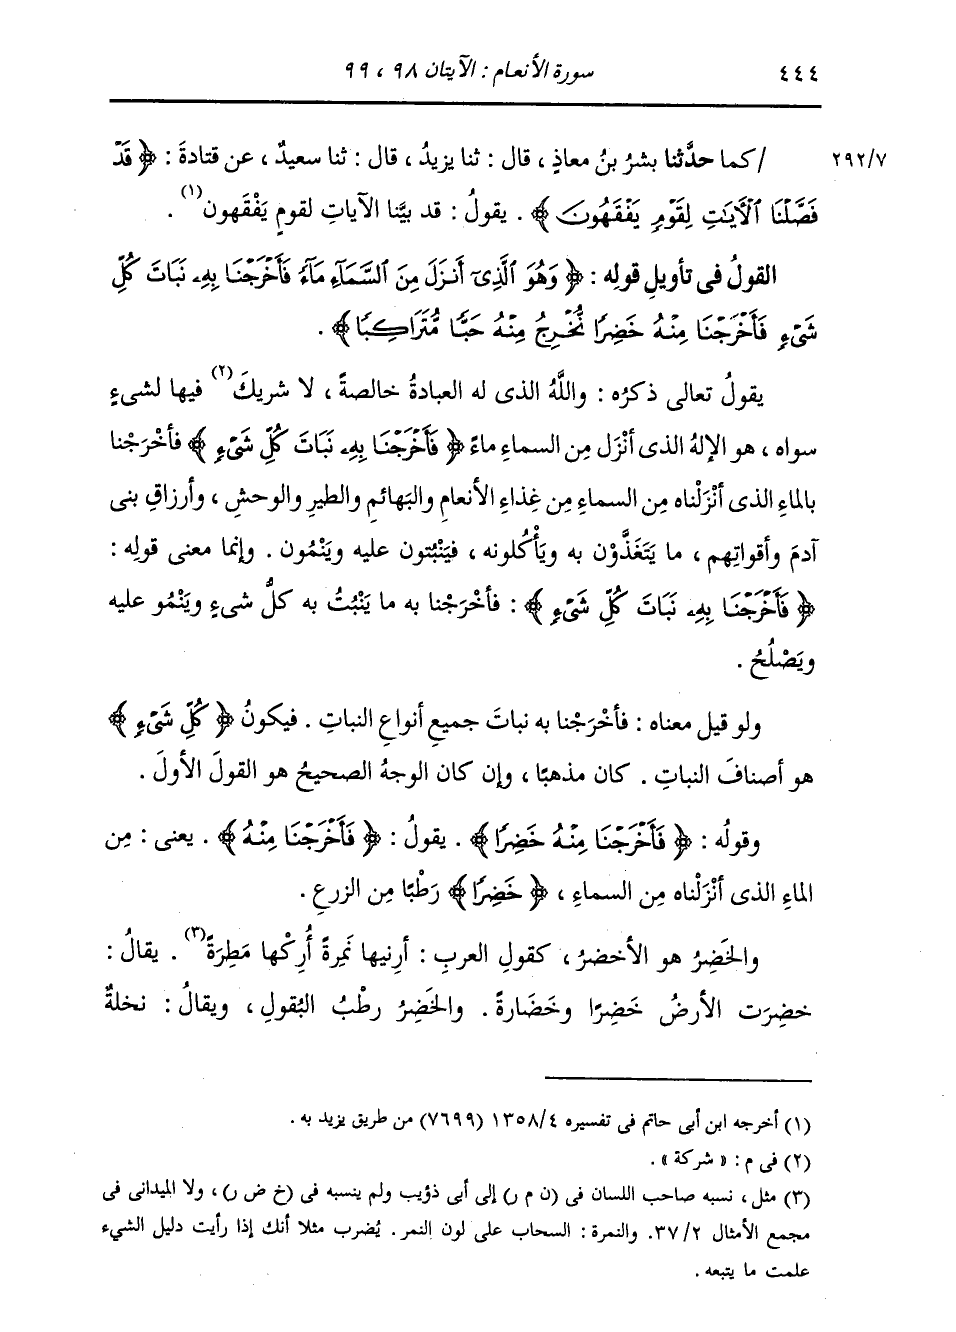 ٤٤٤ سورة الأنعام : الآيتان ٩٨ ، ٩٩
٢٩٢/٧ /كما حدَّثنا بشرُ بنُ معاذٍ ، قال : ثنا يزيدُ ، قال : ثنا سعيدٌ ، عن قتادةَ : ﴿ قَدْ
فَصَّلْنَا ٱلْآيَٰتِ لِقَوْمٍ يَفْقَهُونَ ﴾ . يقولُ : قد بيَّنا الآياتِ لقومٍ يَفْقَهون(١) .
القولُ فى تأويلِ قولِه : ﴿ وَهُوَ ٱلَّذِىٓ أَنزَلَ مِنَ ٱلسَّمَآءِ مَآءً فَأَخْرَجْنَا بِهِۦ نَبَاتَ كُلِّ
شَىْءٍ فَأَخْرَجْنَا مِنْهُ خَضِرًا نُّخْرِجُ مِنْهُ حَبًّا مُّتَرَاكِبًا ﴾ .
يقولُ تعالى ذكرُه : واللَّهُ الذى له العبادةُ خالصةً ، لا شريكَ(٢) فيها لشىءٍ
سواه ، هو الإلهُ الذى أنْزَل مِن السماءِ ماءً ﴿ فَأَخْرَجْنَا بِهِۦ نَبَاتَ كُلِّ شَىْءٍ ﴾ فأَخْرَجْنا
بالماءِ الذى أنْزَلْناه مِن السماءِ مِن غِذاءِ الأنعامِ والبَهائمِ والطيرِ والوحشِ ، وأرزاقِ بنى
آدمَ وأقواتِهم ، ما يَتَغَذَّوْن به ويَأْكُلونه ، فيَنْبُتون عليه ويَنْمُون . وإنما معنى قولِه :
﴿ فَأَخْرَجْنَا بِهِۦ نَبَاتَ كُلِّ شَىْءٍ ﴾ : فأخْرَجْنا به ما يَنْبُتُ به كلُّ شىءٍ ويَنْمُو عليه
ويَصْلُحُ .
ولو قيل معناه : فأخْرَجْنا به نباتَ جميعِ أنواعِ النباتِ . فيكونُ ﴿ كُلِّ شَىْءٍ ﴾
هو أصنافَ النباتِ . كان مذهبًا ، وإن كان الوجهُ الصحيحُ هو القولَ الأولَ .
وقولُه : ﴿ فَأَخْرَجْنَا مِنْهُ خَضِرًا ﴾ . يقولُ : ﴿ فَأَخْرَجْنَا مِنْهُ ﴾ . يعنى : مِن
الماءِ الذى أنْزَلْناه مِن السماءِ ، ﴿ خَضِرًا ﴾ رَطْبًا مِن الزرعِ .
والخَضِرُ هو الأخضرُ ، كقولِ العربِ : أرِنيها نَمِرةً أُرِكْها مَطِرَةً(٣) . يقالُ :
خضِرَت الأرضُ خَضِرًا وخَضَارةً . والخَضِرُ رطْبُ البُقولِ ، ويقالُ : نخلةٌ
(١) أخرجه ابن أبى حاتم فى تفسيره ١٣٥٨/٤ (٧٦٩٩) من طريق يزيد به .
(٢) فى م : « شركة » .
(٣) مثل ، نسبه صاحب اللسان فى (ن م ر) إلى أبى ذؤيب ولم ينسبه فى (خ ض ر) ، ولا الميدانى فى
مجمع الأمثال ٣٧/٢. والنمرة : السحاب على لون النمر . يُضرب مثلا أنك إذا رأيت دليل الشيء
علمت ما يتبعه .